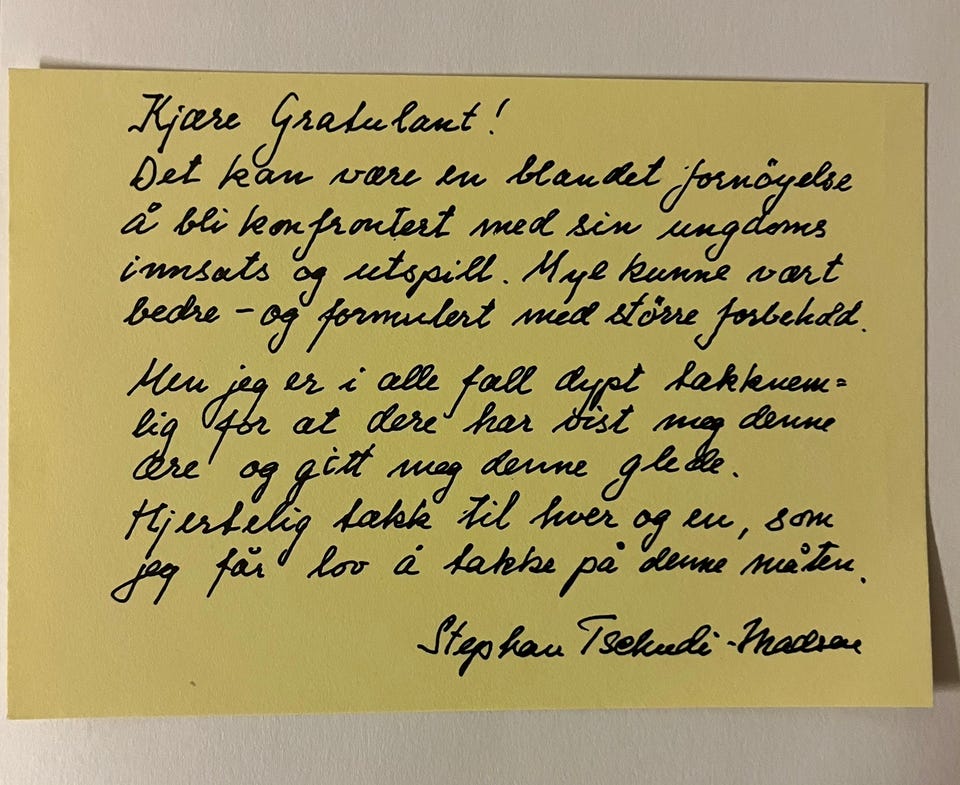 Kjære Gratulant!
Det kan være en blandet fornöyelse
å bli konfrontert med sin ungdoms
innsats og utspill. Mye kunne vært
bedre - og formulert med större forbehold.
Men jeg er i alle fall dypt takknem=
lig for at dere har vist meg denne
ære og gitt meg denne glede.
Hjertelig takk til hver og en, som
jeg får lov å takke på denne måten.
Stephan Tschudi-Madsen